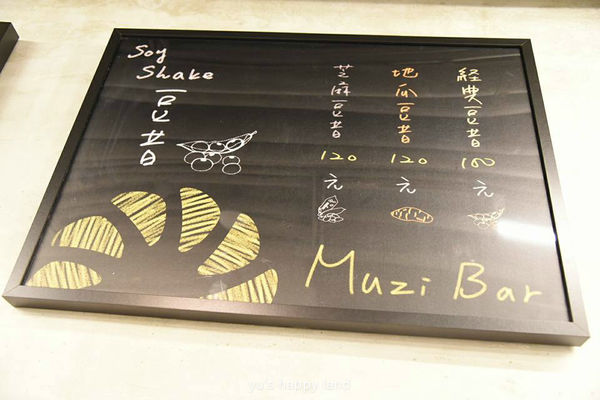 Soy
Shake
豆昔
経典豆昔
100
元
地瓜豆昔
120
元
芝麻豆昔
120
元
Muzi Bar
yu's happy land